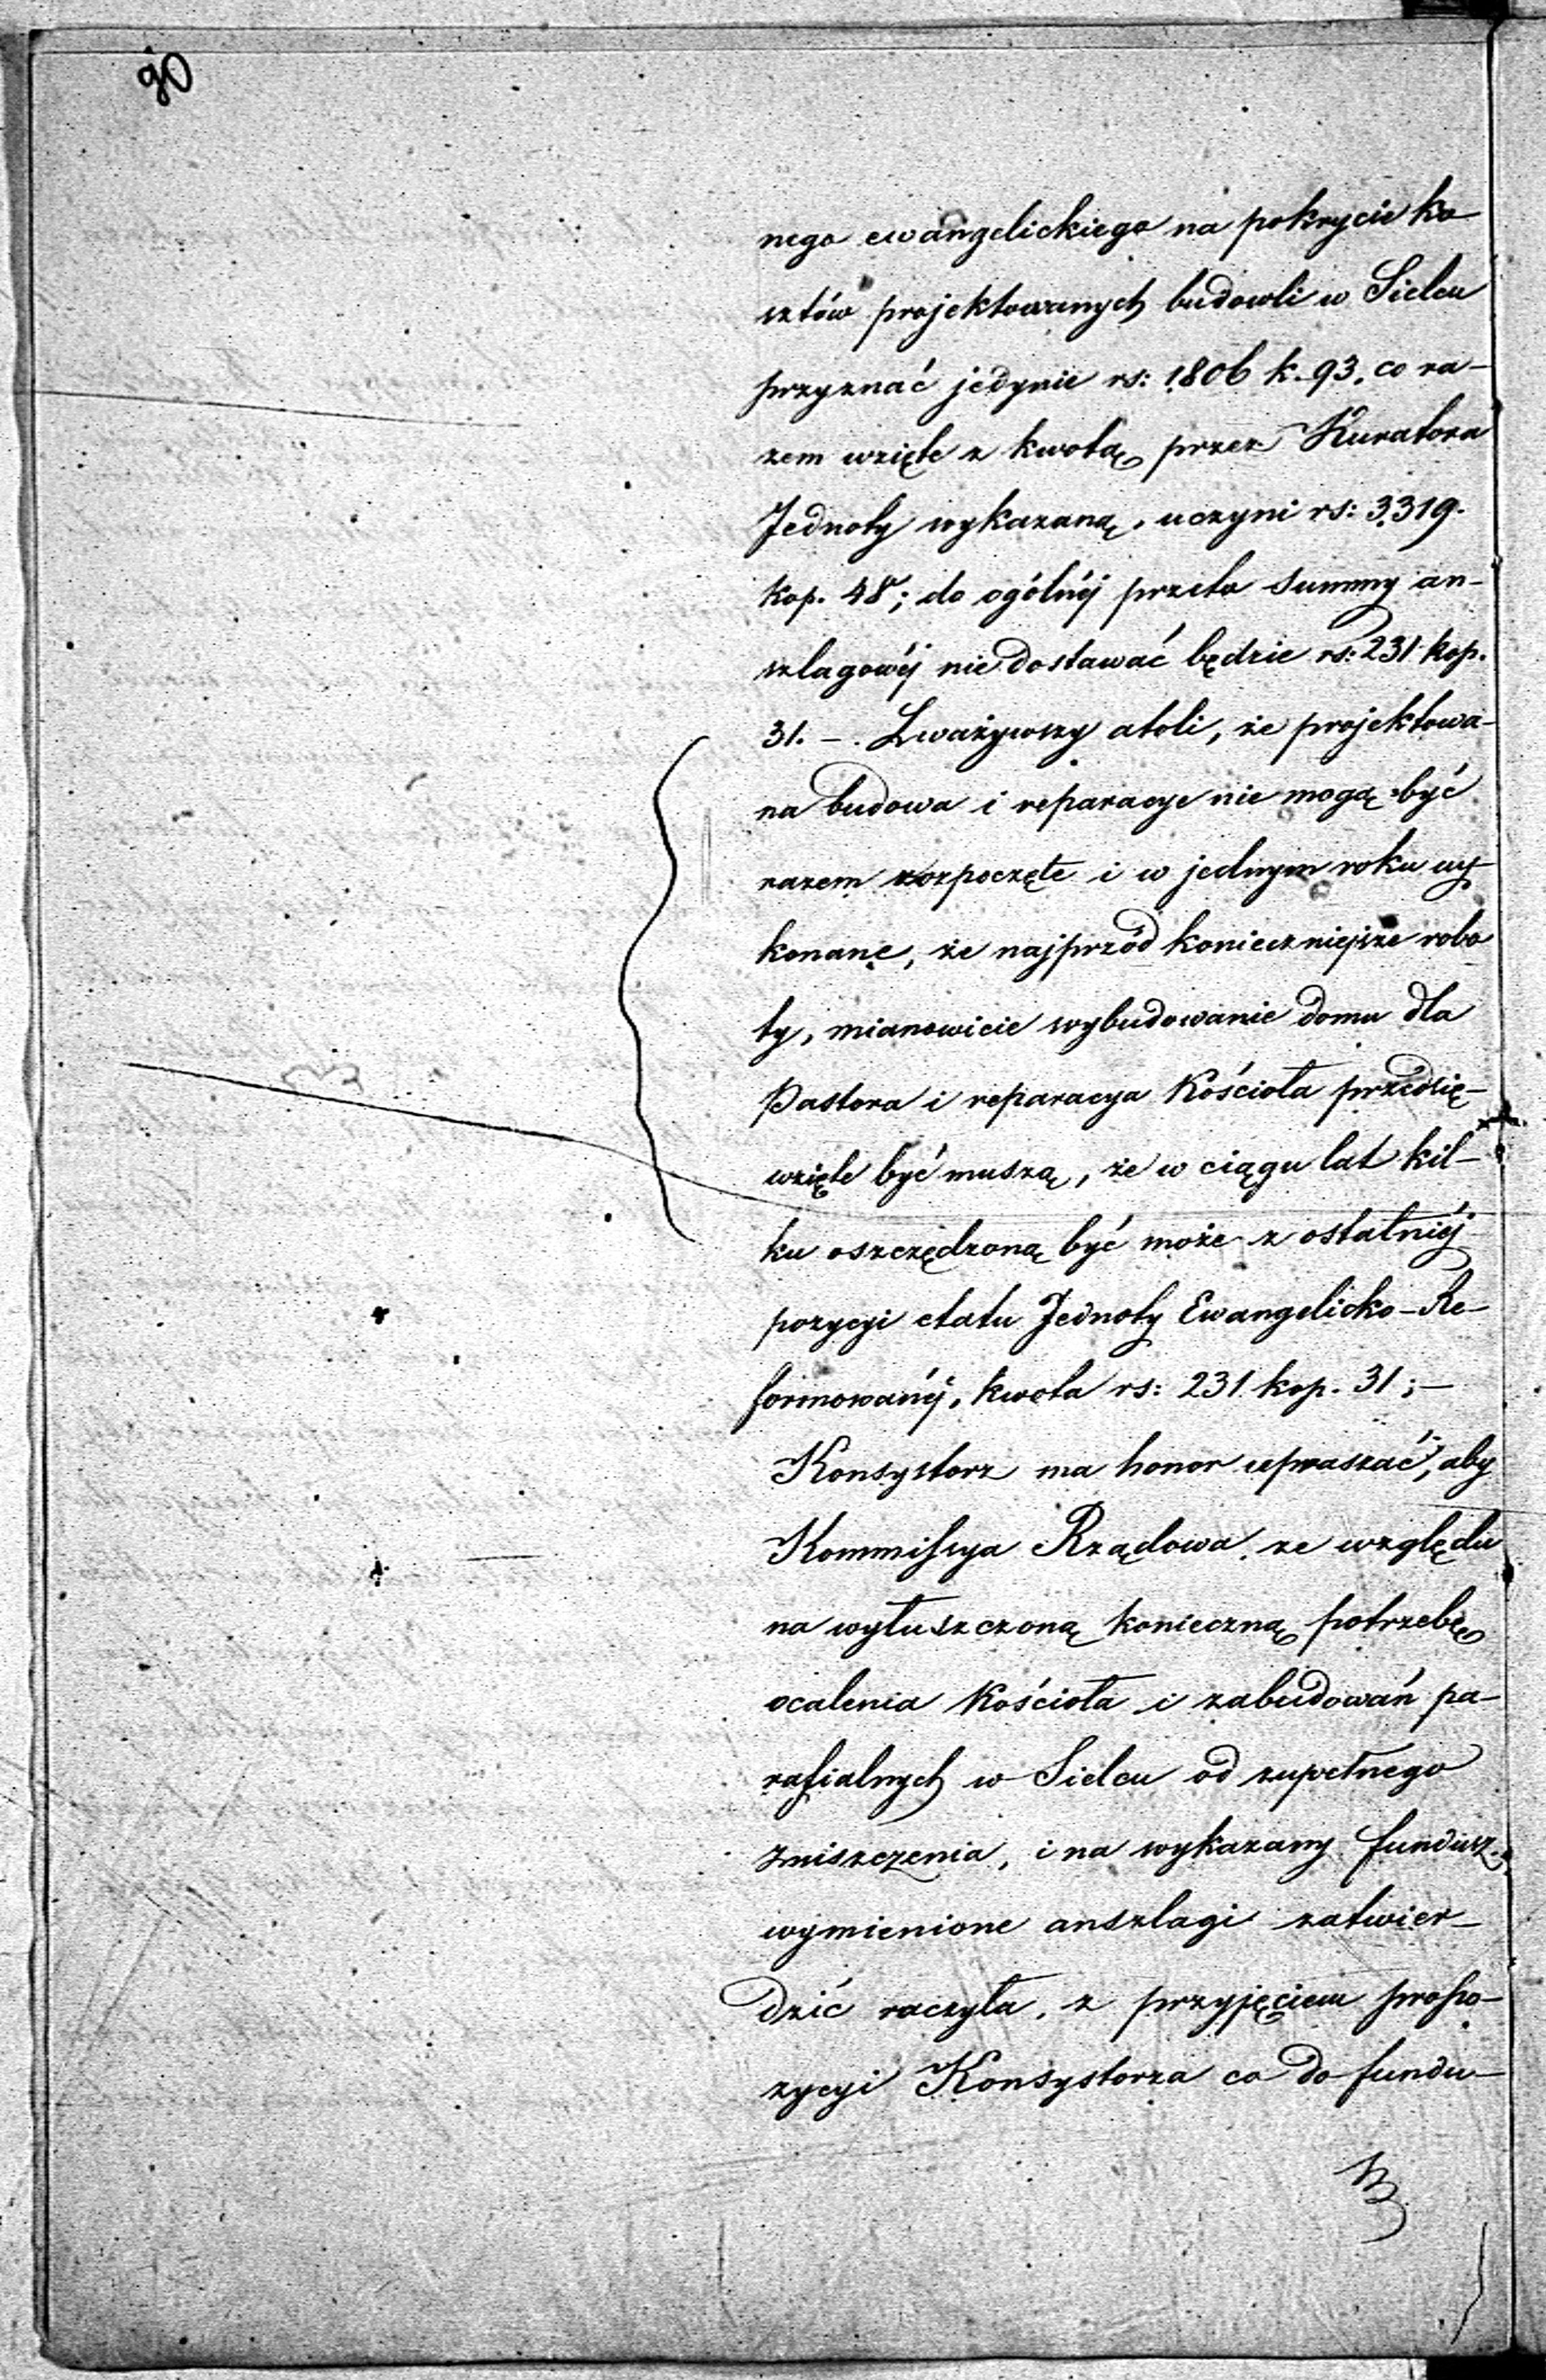 90
nego ewangelickiego na pokrycie ko-
sztów projektowanych budowli w Sielcu
przyznać jedynie rs: 1806 k. 93. co ra-
zem wzięte z kwotą przez Kuratora
Jednoty wykazaną, uczyni rs: 3319.
kop. 48; do ogólnéj przeto Summy an-
szlagowéj niedostawać będzie rs: 231 kop.
31. –. Zważywszy atoli, że projektowa-
na budowa i reparacye nie mogą być
razem rozpoczęte i w jednym roku wy-
konane, że najprzód konieczniejsze robo
ty, mianowicie wybudowanie domu dla
Pastora i reparacya Kościoła przedsię-
wzięte być muszą, że w ciągu lat kil-
ku oszczędzoną być może z ostatniéj
pozycyi etatu Jednoty Ewangelicko-Re-
formowanéj, kwota rs: 231 kop. 31; –
Konsystorz ma honor upraszać, aby
Kommissya Rządowa ze względu
na wyłuszczoną konieczną potrzebę
ocalenia Kościoła i zabudowań pa-
rafialnych w Sielcu od zupełnego
zniszczenia, i na wykazany fundusz
wymienione anszlagi zatwier-
dzić raczyła, z przyjęciem propo-
zycyi Konsystorza co do fundu-